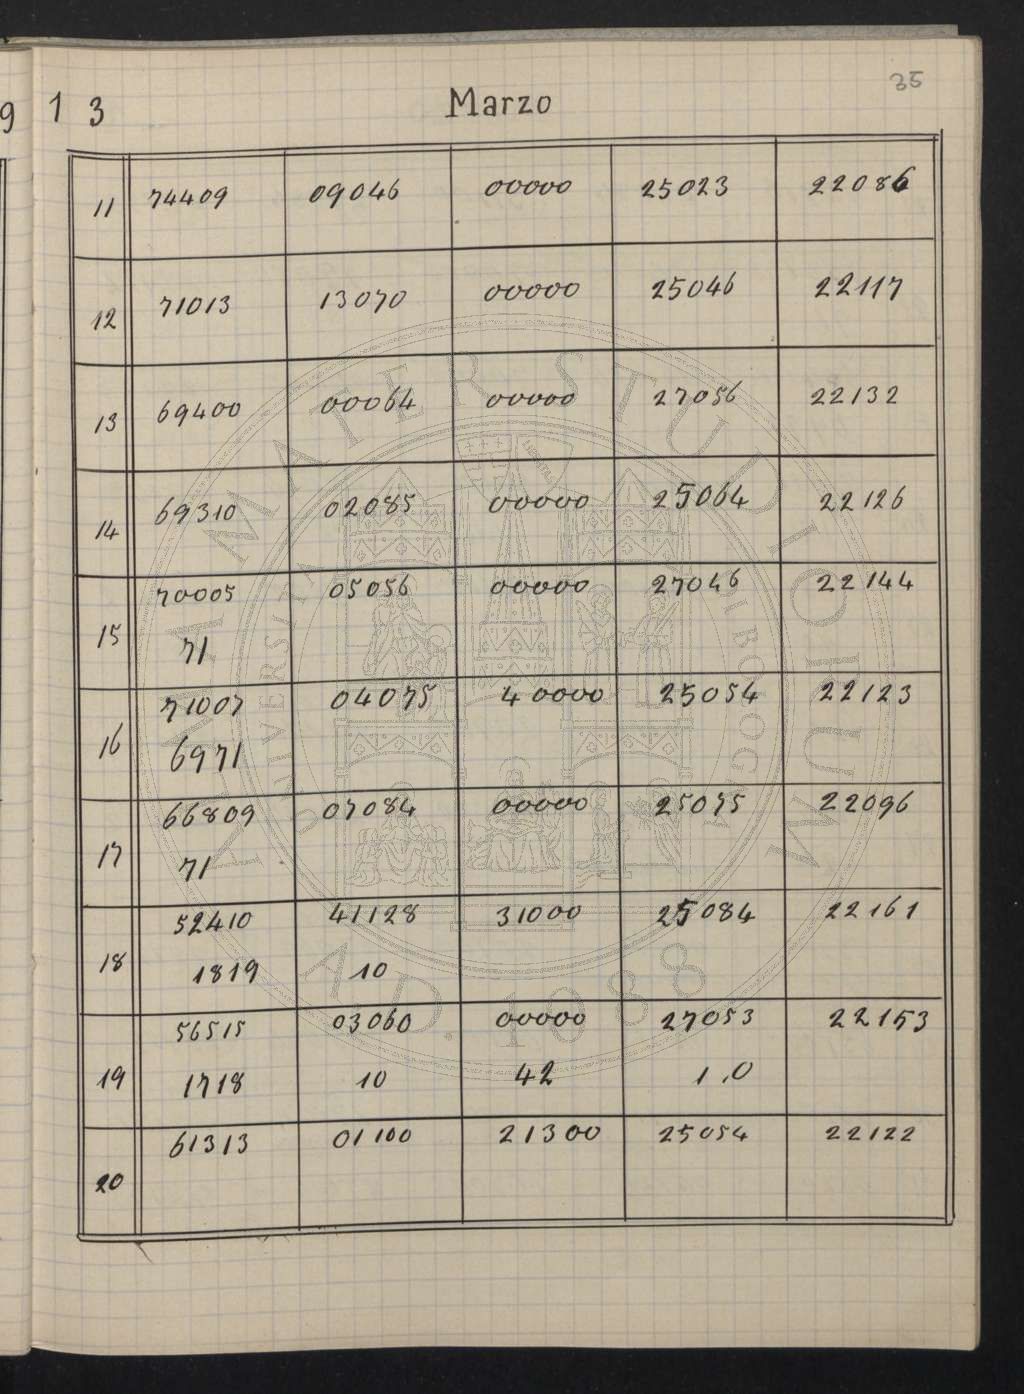 35
9 1 3 Marzo
11 74409 09046 00000 25023 22086
12 71013 13070 00000 25046 22117
13 69400 00064 00000 27056 22132
14 69310 02085 00000 25064 22126
15 70005 05056 00000 27046 22144
71
16 71007 04075 40000 25054 22123
6971
17 66809 07084 00000 25075 22096
71
18 52410 41128 31000 25084 22161
1819 10
19 56515 03060 00000 27053 22153
1718 10 42 1.0
20 61313 01100 21300 25054 22122
ALMA MATER STUDIORUM
A.D. 1088